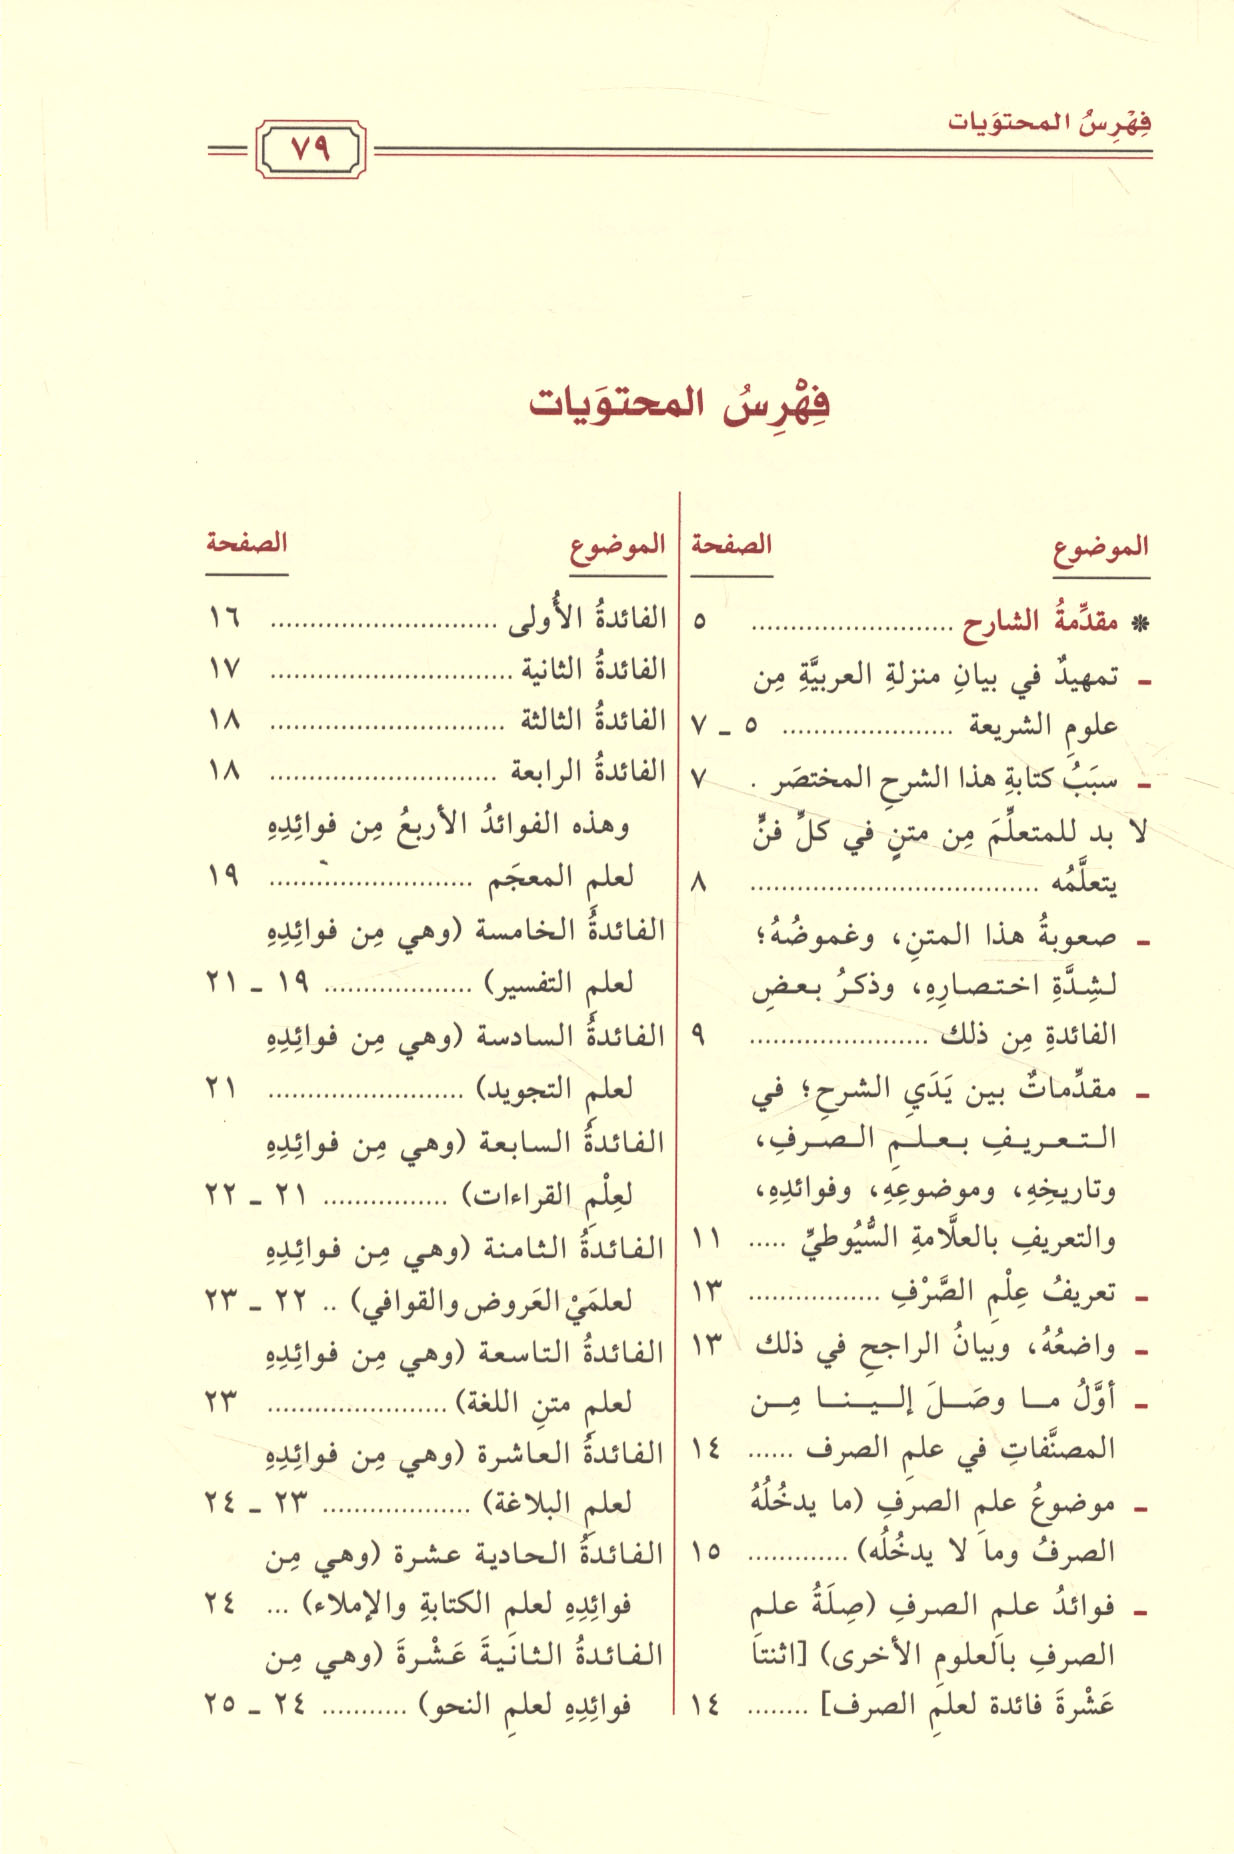 فِهْرِسُ المحتوَيات
٧٩
فِهْرِسُ المحتوَيات
الموضوع الصفحة
* مقدِّمةُ الشارح ......................... ٥
ـ تمهيدٌ في بيانِ منزلةِ العربيَّةِ مِن
علومِ الشريعة ..................... ٥ ـ ٧
ـ سبَبُ كتابةِ هذا الشرحِ المختصَر . ٧
لا بد للمتعلِّمَ مِن متنٍ في كلِّ فنٍّ
يتعلَّمُه ..................................... ٨
ـ صعوبةُ هذا المتنِ، وغموضُهُ؛
لشِدَّةِ اختصارِهِ، وذكرُ بعضِ
الفائدةِ مِن ذلك ....................... ٩
ـ مقدِّماتٌ بين يَدَيِ الشرحِ؛ في
التعريفِ بعلمِ الصرفِ،
وتاريخِهِ، وموضوعِهِ، وفوائدِهِ،
والتعريفِ بالعلَّامةِ السُّيُوطيِّ ..... ١١
ـ تعريفُ عِلْمِ الصَّرْفِ ................. ١٣
ـ واضعُهُ، وبيانُ الراجحِ في ذلك ١٣
ـ أوَّلُ ما وصَلَ إلينا مِن
المصنَّفاتِ في علمِ الصرف ...... ١٤
ـ موضوعُ علمِ الصرفِ (ما يدخُلُهُ
الصرفُ وما لا يدخُلُه) ............. ١٥
ـ فوائدُ علمِ الصرفِ (صِلَةُ علمِ
الصرفِ بالعلومِ الأخرى) [اثنتا
عَشْرةَ فائدة لعلمِ الصرف] ........ ١٤
الموضوع الصفحة
الفائدةُ الأُولى ............................. ١٦
الفائدةُ الثانية ............................... ١٧
الفائدةُ الثالثة .............................. ١٨
الفائدةُ الرابعة ............................. ١٨
وهذه الفوائدُ الأربعُ مِن فوائِدِهِ
لعلمِ المعجَم .......................... ١٩
الفائدةُ الخامسة (وهي مِن فوائِدِهِ
لعلمِ التفسير) ................... ١٩ ـ ٢١
الفائدةُ السادسة (وهي مِن فوائِدِهِ
لعلمِ التجويد) ......................... ٢١
الفائدةُ السابعة (وهي مِن فوائِدِهِ
لعِلْمِ القراءات) ................ ٢١ ـ ٢٢
الفائدةُ الثامنة (وهي مِن فوائِدِهِ
لعلمَيْ العَروض والقوافي) .. ٢٢ ـ ٢٣
الفائدةُ التاسعة (وهي مِن فوائِدِهِ
لعلمِ متنِ اللغة) ....................... ٢٣
الفائدةُ العاشرة (وهي مِن فوائِدِهِ
لعلمِ البلاغة) ................... ٢٣ ـ ٢٤
الفائدةُ الحادية عشرة (وهي مِن
فوائِدِهِ لعلمِ الكتابةِ والإملاء) ... ٢٤
الفائدةُ الثانيةَ عَشْرةَ (وهي مِن
فوائِدِهِ لعلمِ النحو) ........... ٢٤ ـ ٢٥